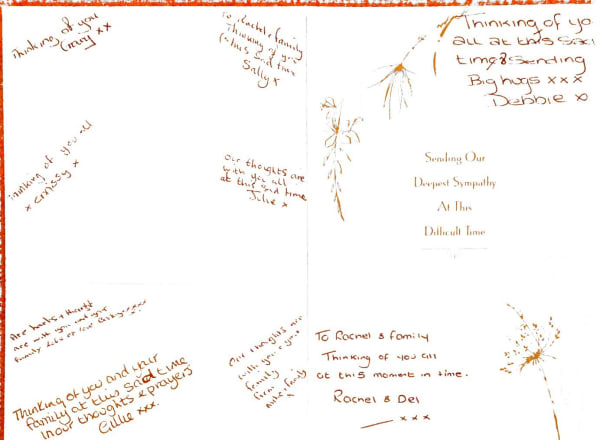 Thinking of you
xx
To Rachel & family
Thinking of you
at this sad time
Sally x
Thinking of yo
all at this sad
time & sending
Big hugs xxx
Debbie xo
Thinking of you all
x Chrissy x
Our thoughts are
with you all
at this sad time
Julie x
Sending Our
Deepest Sympathy
At This
Difficult Time
Are hearts & thought
are with you and your
family lots of love
Our thoughts are
with you & your
family
from
& family
To Rachel & family
Thinking of you all
at this moment in time.
Rachel & Del
xxx
Thinking of you and your
family at this sad time
In our thoughts & prayers
xxx.